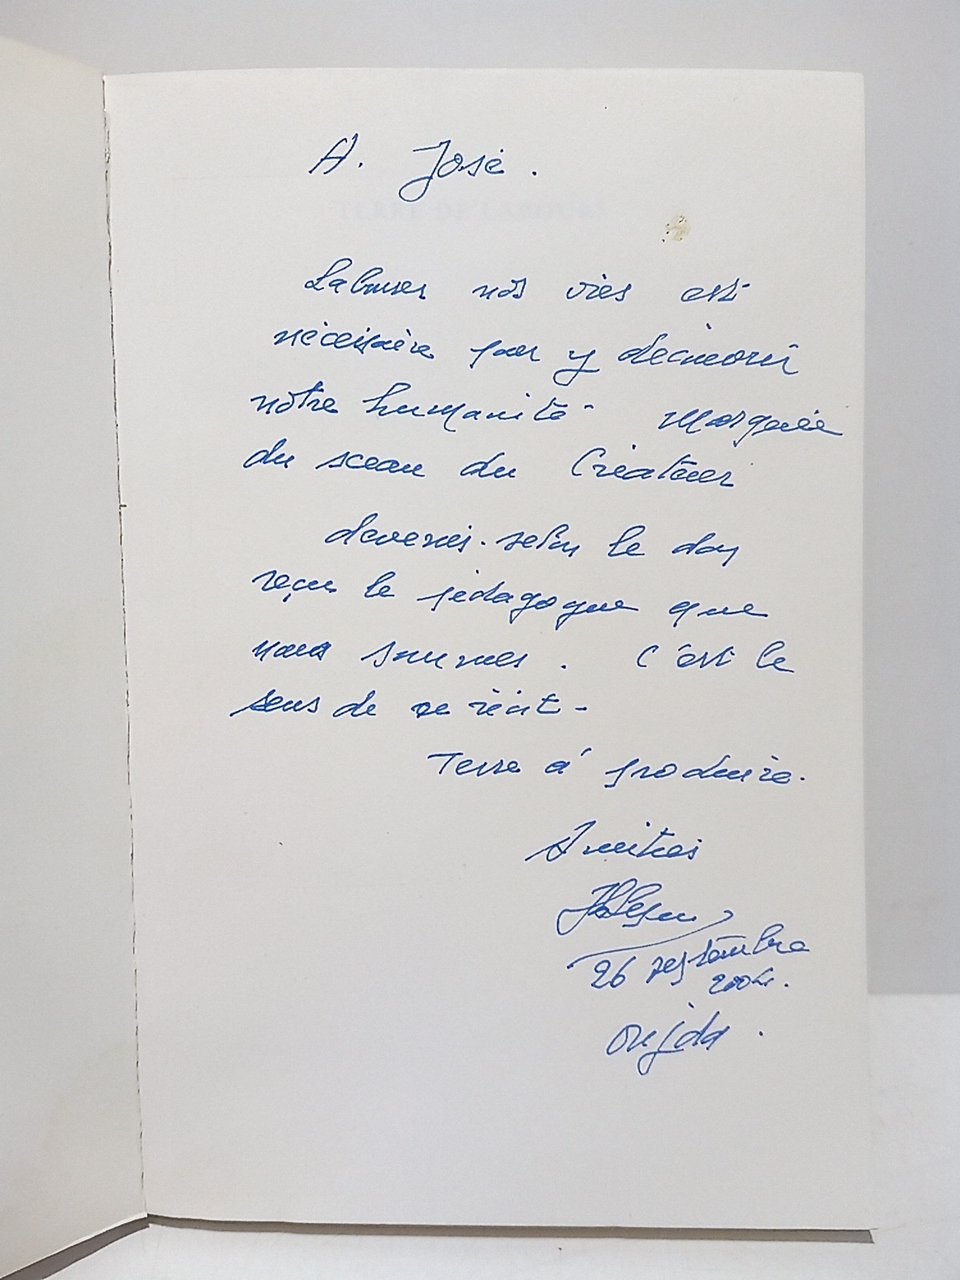 A. José.
Labourer nos vies est
nécessaire pour y découvrir
notre humanité marquée
du sceau du Créateur
devenir. selon le don
reçu le pédagogue que
nous sommes. C'est le
sens de ce récit -
Terre à produire.
Amitiés
26 septembre
2004.
Oujda.